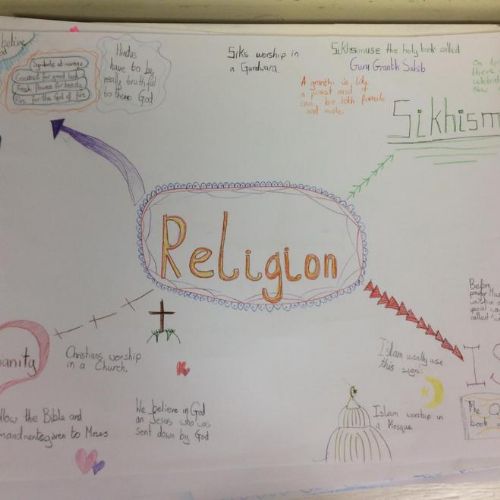 believe
Symbols of omega
Coconut for good luck
Fresh flowers for beauty
Fire for the God of fire
Hindus
have to be
really truthful
to there God
Siks worship in
a Gurdwara
Sikhismuse the holy book called
Guru Granth Sahib
A granthi is like
a priest and it
can be both female
and male.
Sikhism
Religion
anity
Christians worship
in a Church.
llow the Bible and
mandments given to Moses
We believe in God
an Jesus who was
sent down by God
Islam usally use
this sign.
Islam worship in
a Mosque
Before
I S
The Q
book